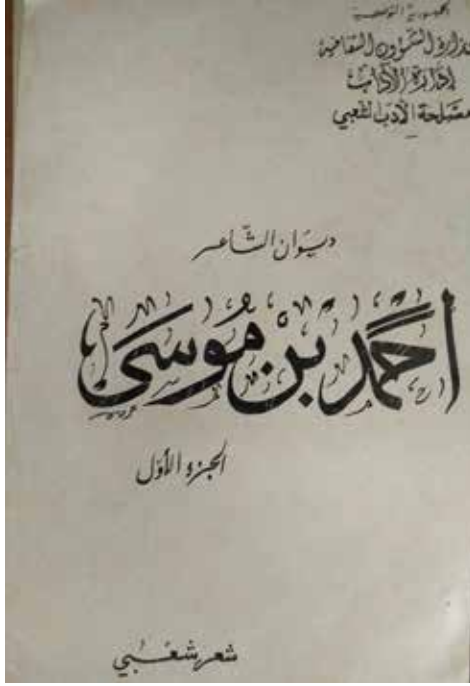 الجمهورية التونسية
وزارة الشؤون الثقافية
إدارة الآداب
مصلحة الأدب الشعبي
ديوان الشاعر
أحمد بن موسى
الجزء الأول
شعر شعبي